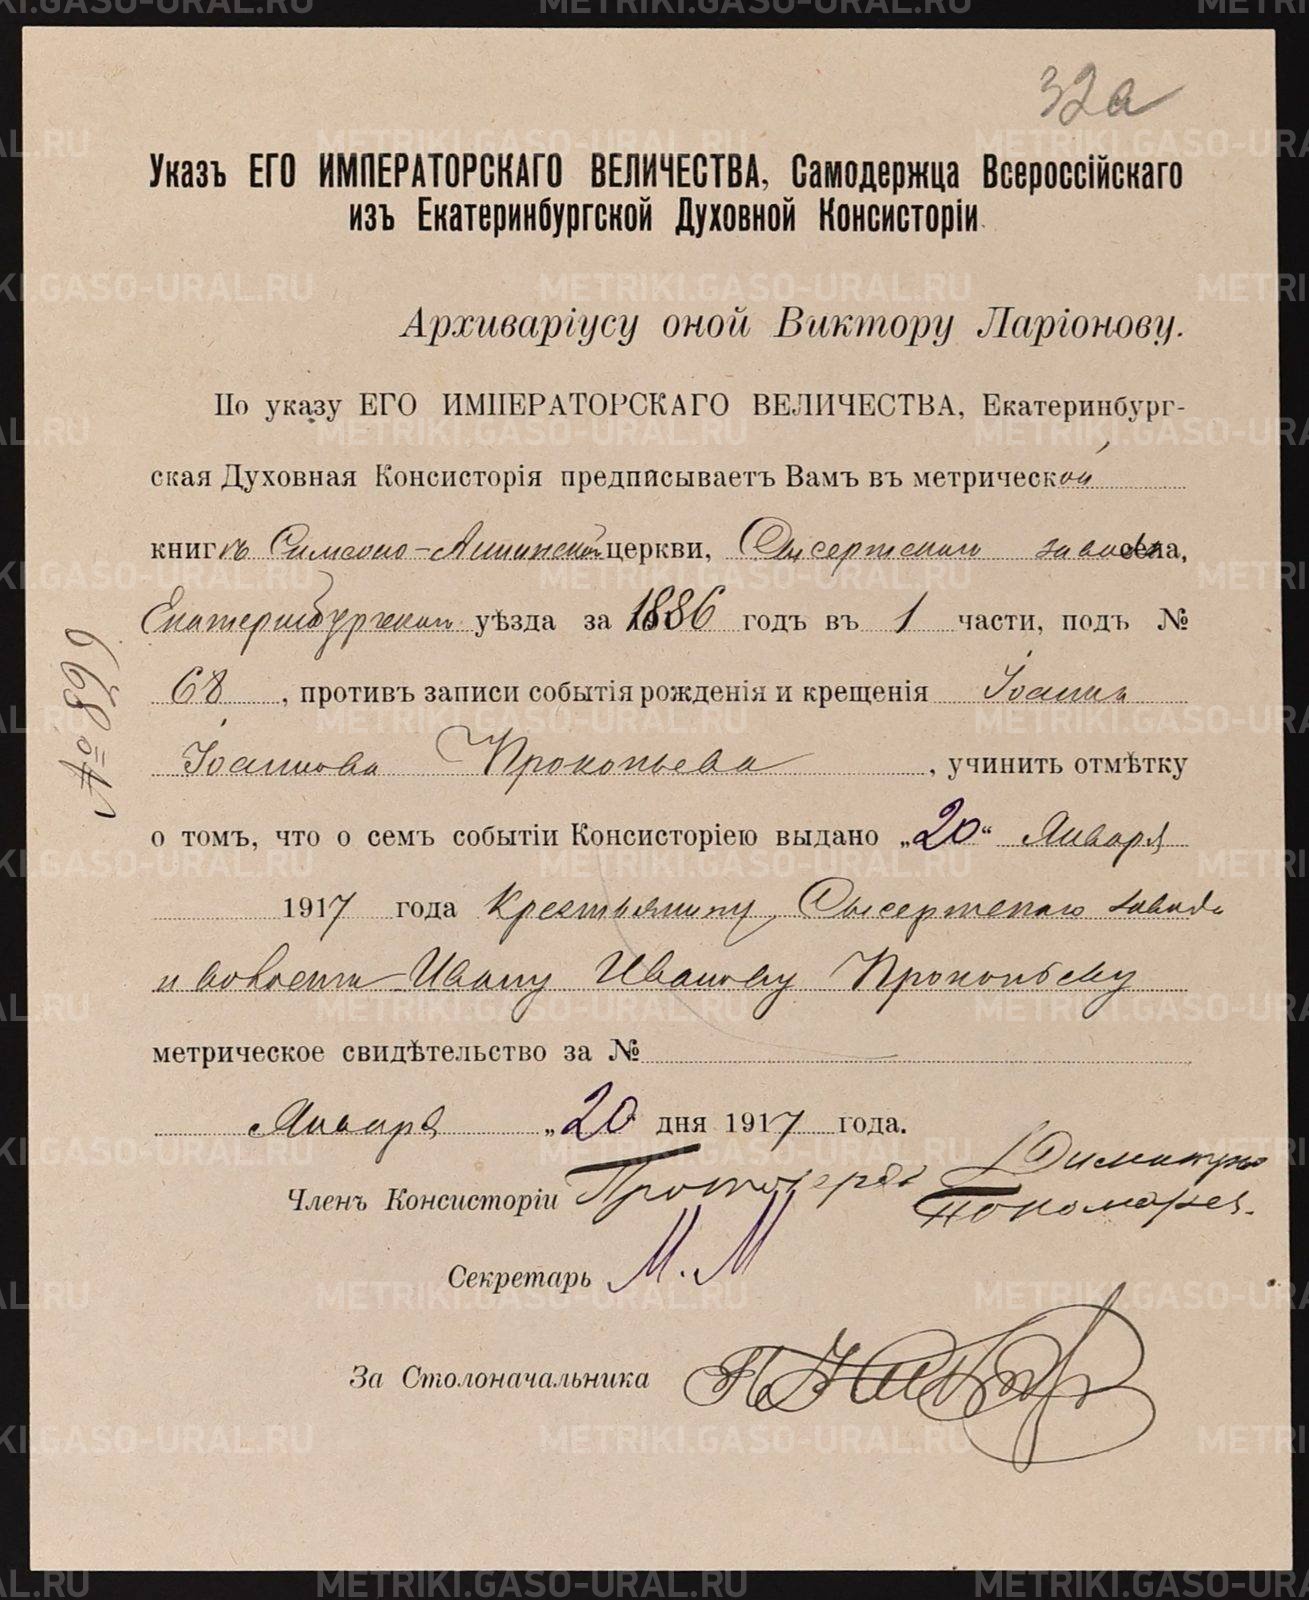 32а
Указъ ЕГО ИМПЕРАТОРСКАГО ВЕЛИЧЕСТВА, Самодержца Всероссійскаго
изъ Екатеринбургской Духовной Консисторіи
Архиваріусу оной Виктору Ларіонову.
По указу ЕГО ИМПЕРАТОРСКАГО ВЕЛИЧЕСТВА, Екатеринбург-
ская Духовная Консисторія предписываетъ Вамъ въ метрической
книгѣ Симеоно-Аннинской церкви, Сысертскаго завода села,
Екатеринбургскаго уѣзда за 1886 годъ въ 1 части, подъ №
68, противъ записи событія рожденія и крещенія Іоанна
Іоаннова Прокопьева, учинить отмѣтку
о томъ, что о семъ событіи Консисторіею выдано „20“ Января
1917 года Крестьянину Сысертскаго завода
и волости Ивану Иванову Прокопьеву
метрическое свидѣтельство за №
Января „20 дня 1917 года.
Членъ Консисторіи Протоіерей Димитрій
Пономарев.
Секретарь М. М
За Столоначальника
№ 899
METRIKI.GASO-URAL.RU